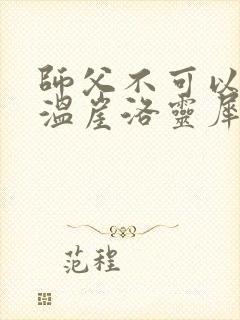 師父不可以
溫崖洛靈犀
范程